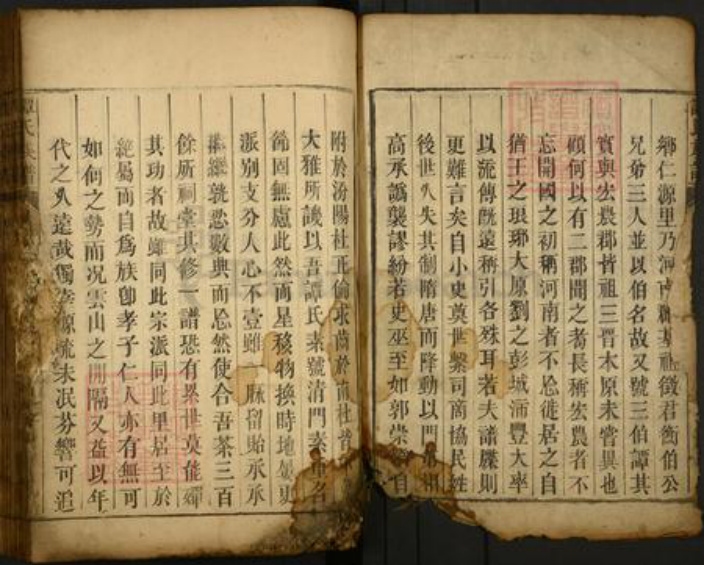 鄉仁源里乃河南郡基祖徵君衡伯公
兄弟三人並以伯名故又號三伯譚其
實與宏農郡皆祖三晉木原未嘗異也
顧何以有二郡聞之耆長稱宏農者不
忘開國之初稱河南者不忘徙居之自
猶王之琅琊太原劉之彭城沛豐大率
以流傳旣遠稱引各殊耳若夫譜牒則
更難言矣自小史奠世繫司商協民姓
後世久失其制隋唐而降動以門
高承譌襲謬紛若史巫至如郭崇 自
附於汾陽杜正倫求齒於南杜昔
大雅所譏以吾譚氏素號清門素 名
節固無慮此然而星移物換時地屢更
派別支分人心不壹雖 一脈留貽承承
繼繼孰忍數典而忘然使合吾茶三百
餘所祠堂共修一譜恐有累世莫能殫
其功者故雖同此宗派同此里居至於
絶屬而自爲族卽孝子仁人亦有無可
如何之勢而况雲山之間隔又益以年
代之久遠哉獨 源疏未泯芬響可追
氏族譜